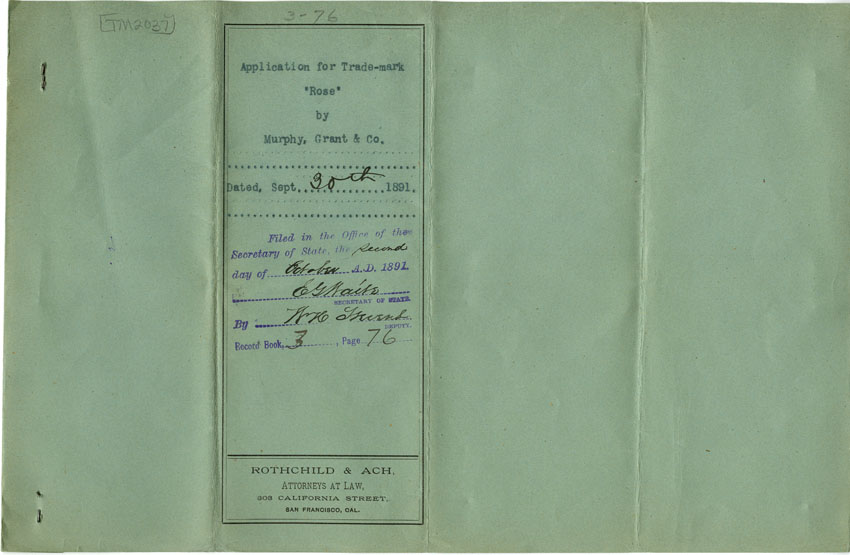 [TM2037]
3-76
Application for Trade-mark
"Rose"
by
Murphy, Grant & Co.
Dated, Sept. 30th 1891.
Filed in the Office of the
Secretary of State, the second
day of October A.D. 1891
E G Waite
SECRETARY OF STATE.
By W H
DEPUTY.
Record Book, 3, Page 76
ROTHCHILD & ACH,
ATTORNEYS AT LAW,
303 CALIFORNIA STREET,
SAN FRANCISCO, CAL.